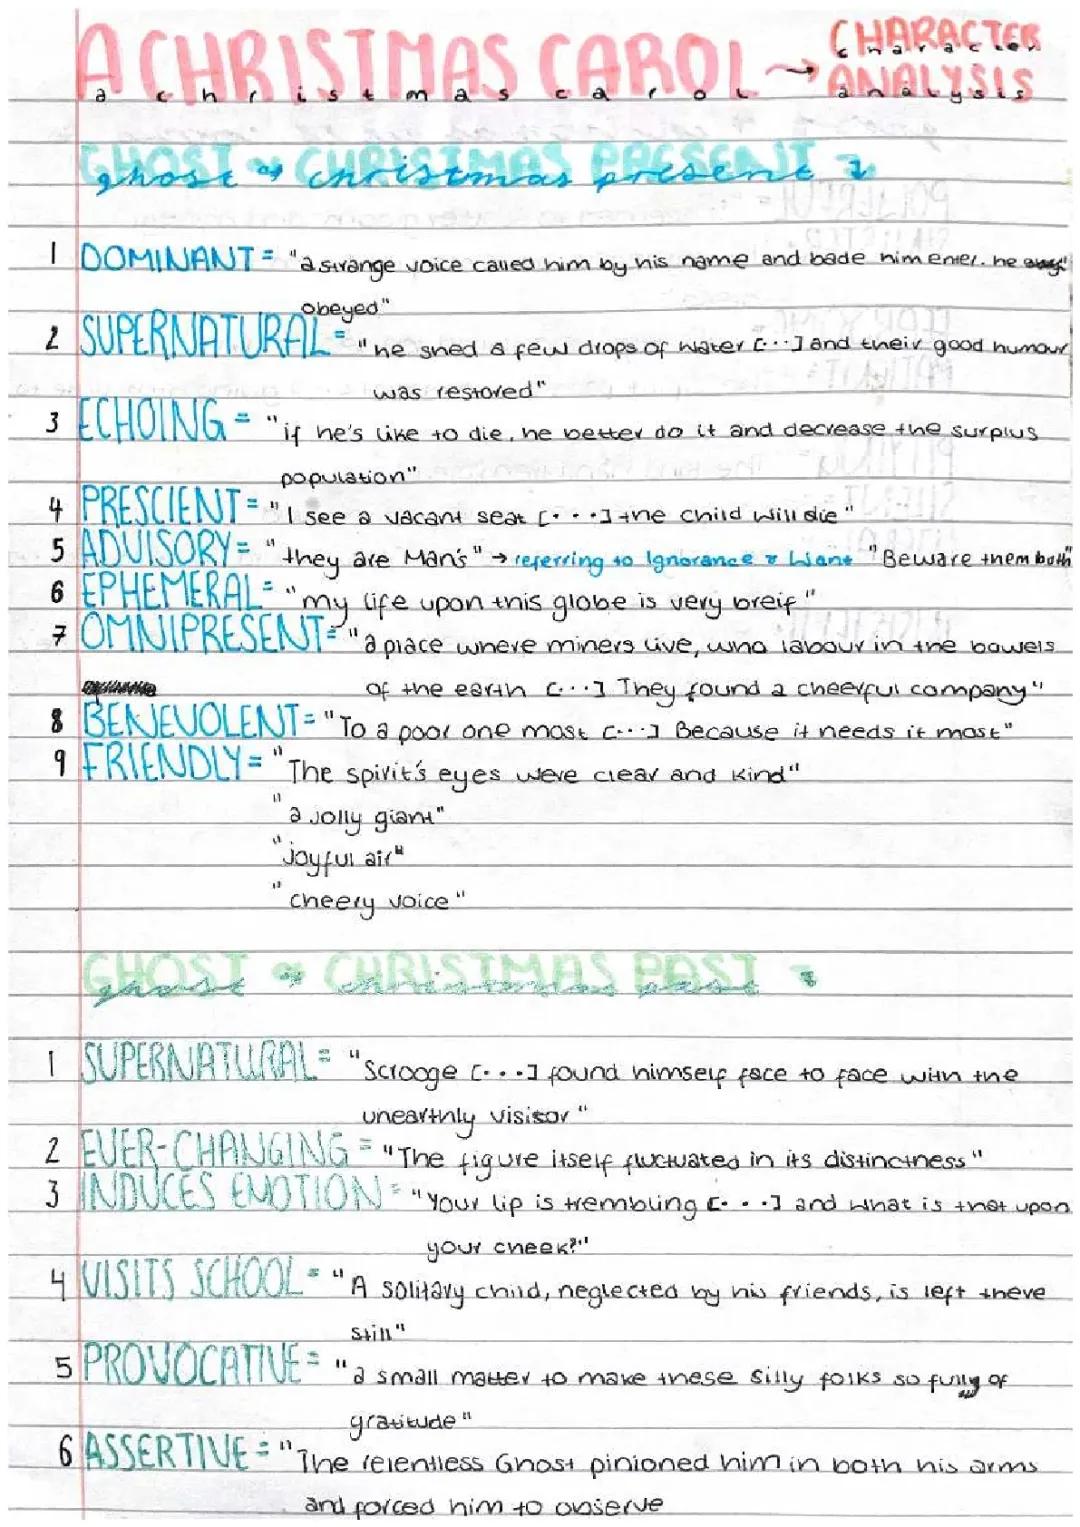 A CHRISTMAS CAROL → CHARACTER
a christmas carol character
ANALYSIS
analysis
GHOST of CHRISTMAS PRESENT
ghost of christmas present
1 DOMINANT = "a strange voice called him by his name and bade him enter. he
obeyed"
2 SUPERNATURAL = "he shed a few drops of water [...] and their good humour
was restored"
3 ECHOING = "if he's like to die, he better do it and decrease the surplus
population"
4 PRESCIENT = "I see a vacant seat [...] the child will die"
5 ADVISORY = "they are Man's" → referring to Ignorance & Want "Beware them both"
6 EPHEMERAL = "my life upon this globe is very breif"
7 OMNIPRESENT = "a place where miners live, who labour in the bowels
of the earth [...] They found a cheerful company"
8 BENEVOLENT = "To a poor one most [...] Because it needs it most"
9 FRIENDLY = "The spirit's eyes were clear and kind"
"a jolly giant"
"Joyful air"
"cheery voice"
GHOST of CHRISTMAS PAST
ghost of christmas past
1 SUPERNATURAL = "Scrooge [...] found himself face to face with the
unearthly visitor"
2 EVER-CHANGING = "The figure itself fluctuated in its distinctness"
3 INDUCES EMOTION = "Your lip is trembling [...] and what is that upon
your cheek?"
4 VISITS SCHOOL = "A solitary child, neglected by his friends, is left there
still"
5 PROVOCATIVE = "a small matter to make these silly folks so full of
gratitude"
6 ASSERTIVE = "The relentless Ghost pinioned him in both his arms
and forced him to observe